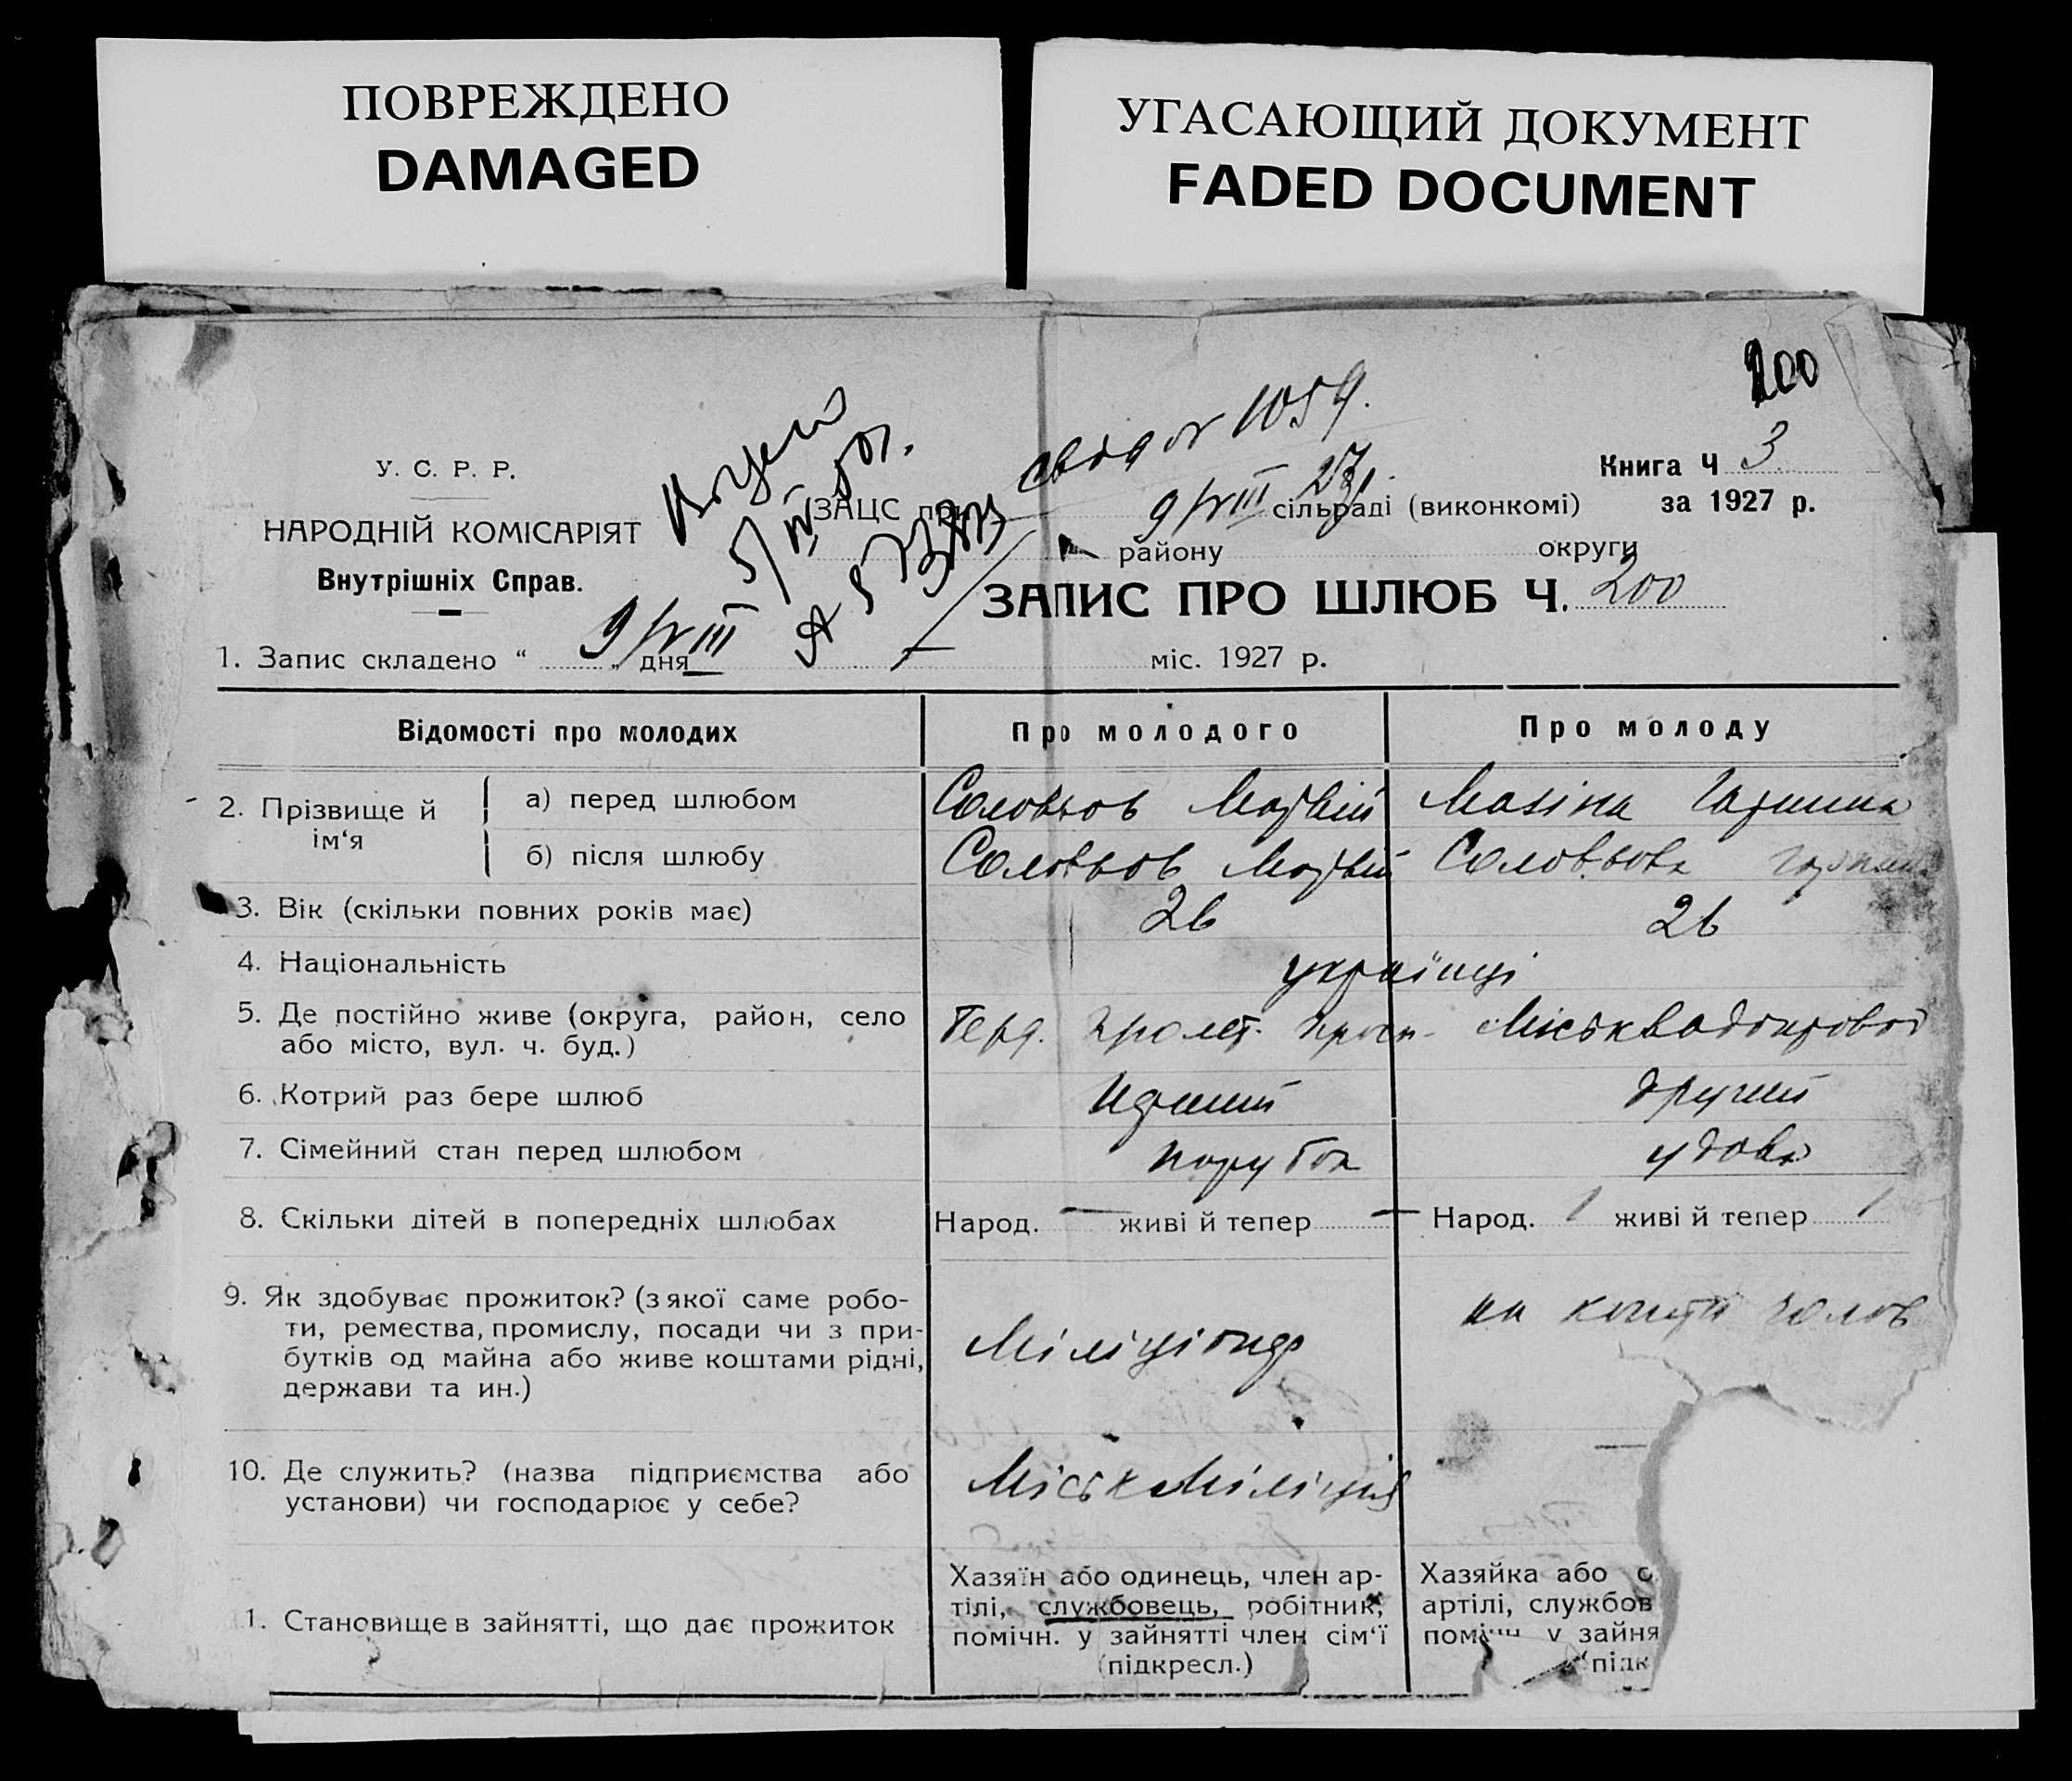 ПОВРЕЖДЕНО
DAMAGED
УГАСАЮЩИЙ ДОКУМЕНТ
FADED DOCUMENT
200
1059.
У. С. Р. Р.
НАРОДНІЙ КОМІСАРІЯТ
Внутрішніх Справ.
Книга Ч 3
за 1927 р.
ЗАЦС при 9/VIII 27р. сільраді (виконкомі)
району округи
ЗАПИС ПРО ШЛЮБ Ч. 200
1. Запис складено “ 9/VIII „ дня міс. 1927 р.
Відомості про молодих Про молодого Про молоду
2. Прізвище й ім‘я а) перед шлюбом Соловьов Матвій Мазіна
б) після шлюбу Соловьов Матвій Соловьова
3. Вік (скільки повних років має) 26 26
4. Національність українці
5. Де постійно живе (округа, район, село
або місто, вул. ч. буд.)
6. Котрий раз бере шлюб перший другий
7. Сімейний стан перед шлюбом парубок удова
8. Скільки дітей в попередніх шлюбах Народ. — живі й тепер — Народ. 1 живі й тепер 1
9. Як здобуває прожиток? (з якої саме робо-
ти, ремества, промислу, посади чи з при-
бутків од майна або живе коштами рідні,
держави та ин.)
Міліціонер
на кошти голов
10. Де служить? (назва підприємства або
установи) чи господарює у себе?
МіськМіліція
—
1. Становище в зайнятті, що дає прожиток
Хазяїн або одинець, член ар-
тілі, службовець, робітник,
помічн. у зайнятті член сім‘ї
(підкресл.)
Хазяйка або о
артілі, службов
помічн у зайня
(підк